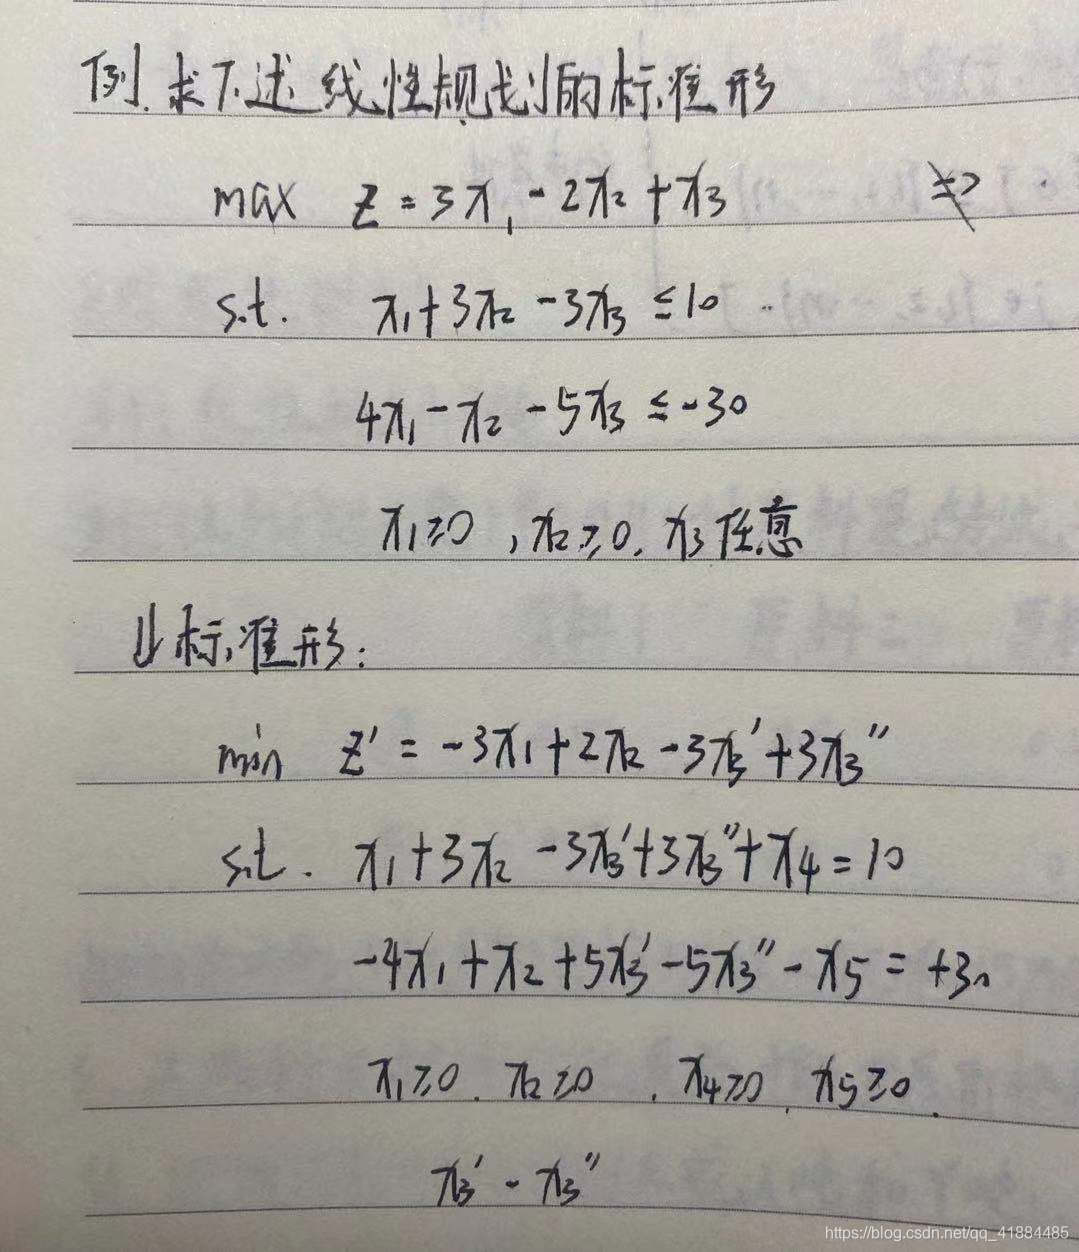 例.求下述线性规划的标准形
max z = 3x₁ - 2x₂ + x₃
s.t. x₁ + 3x₂ - 3x₃ ≤ 10
4x₁ - x₂ - 5x₃ ≤ -30
x₁ ≥ 0 , x₂ ≥ 0. x₃ 任意
⇓ 标准形:
min z' = -3x₁ + 2x₂ - 3x₃' + 3x₃''
s.t. x₁ + 3x₂ - 3x₃' + 3x₃'' + x₄ = 10
-4x₁ + x₂ + 5x₃' - 5x₃'' - x₅ = +30
x₁ ≥ 0 . x₂ ≥ 0 . x₄ ≥ 0 . x₅ ≥ 0 .
x₃' - x₃''
https://blog.csdn.net/qq_41884485